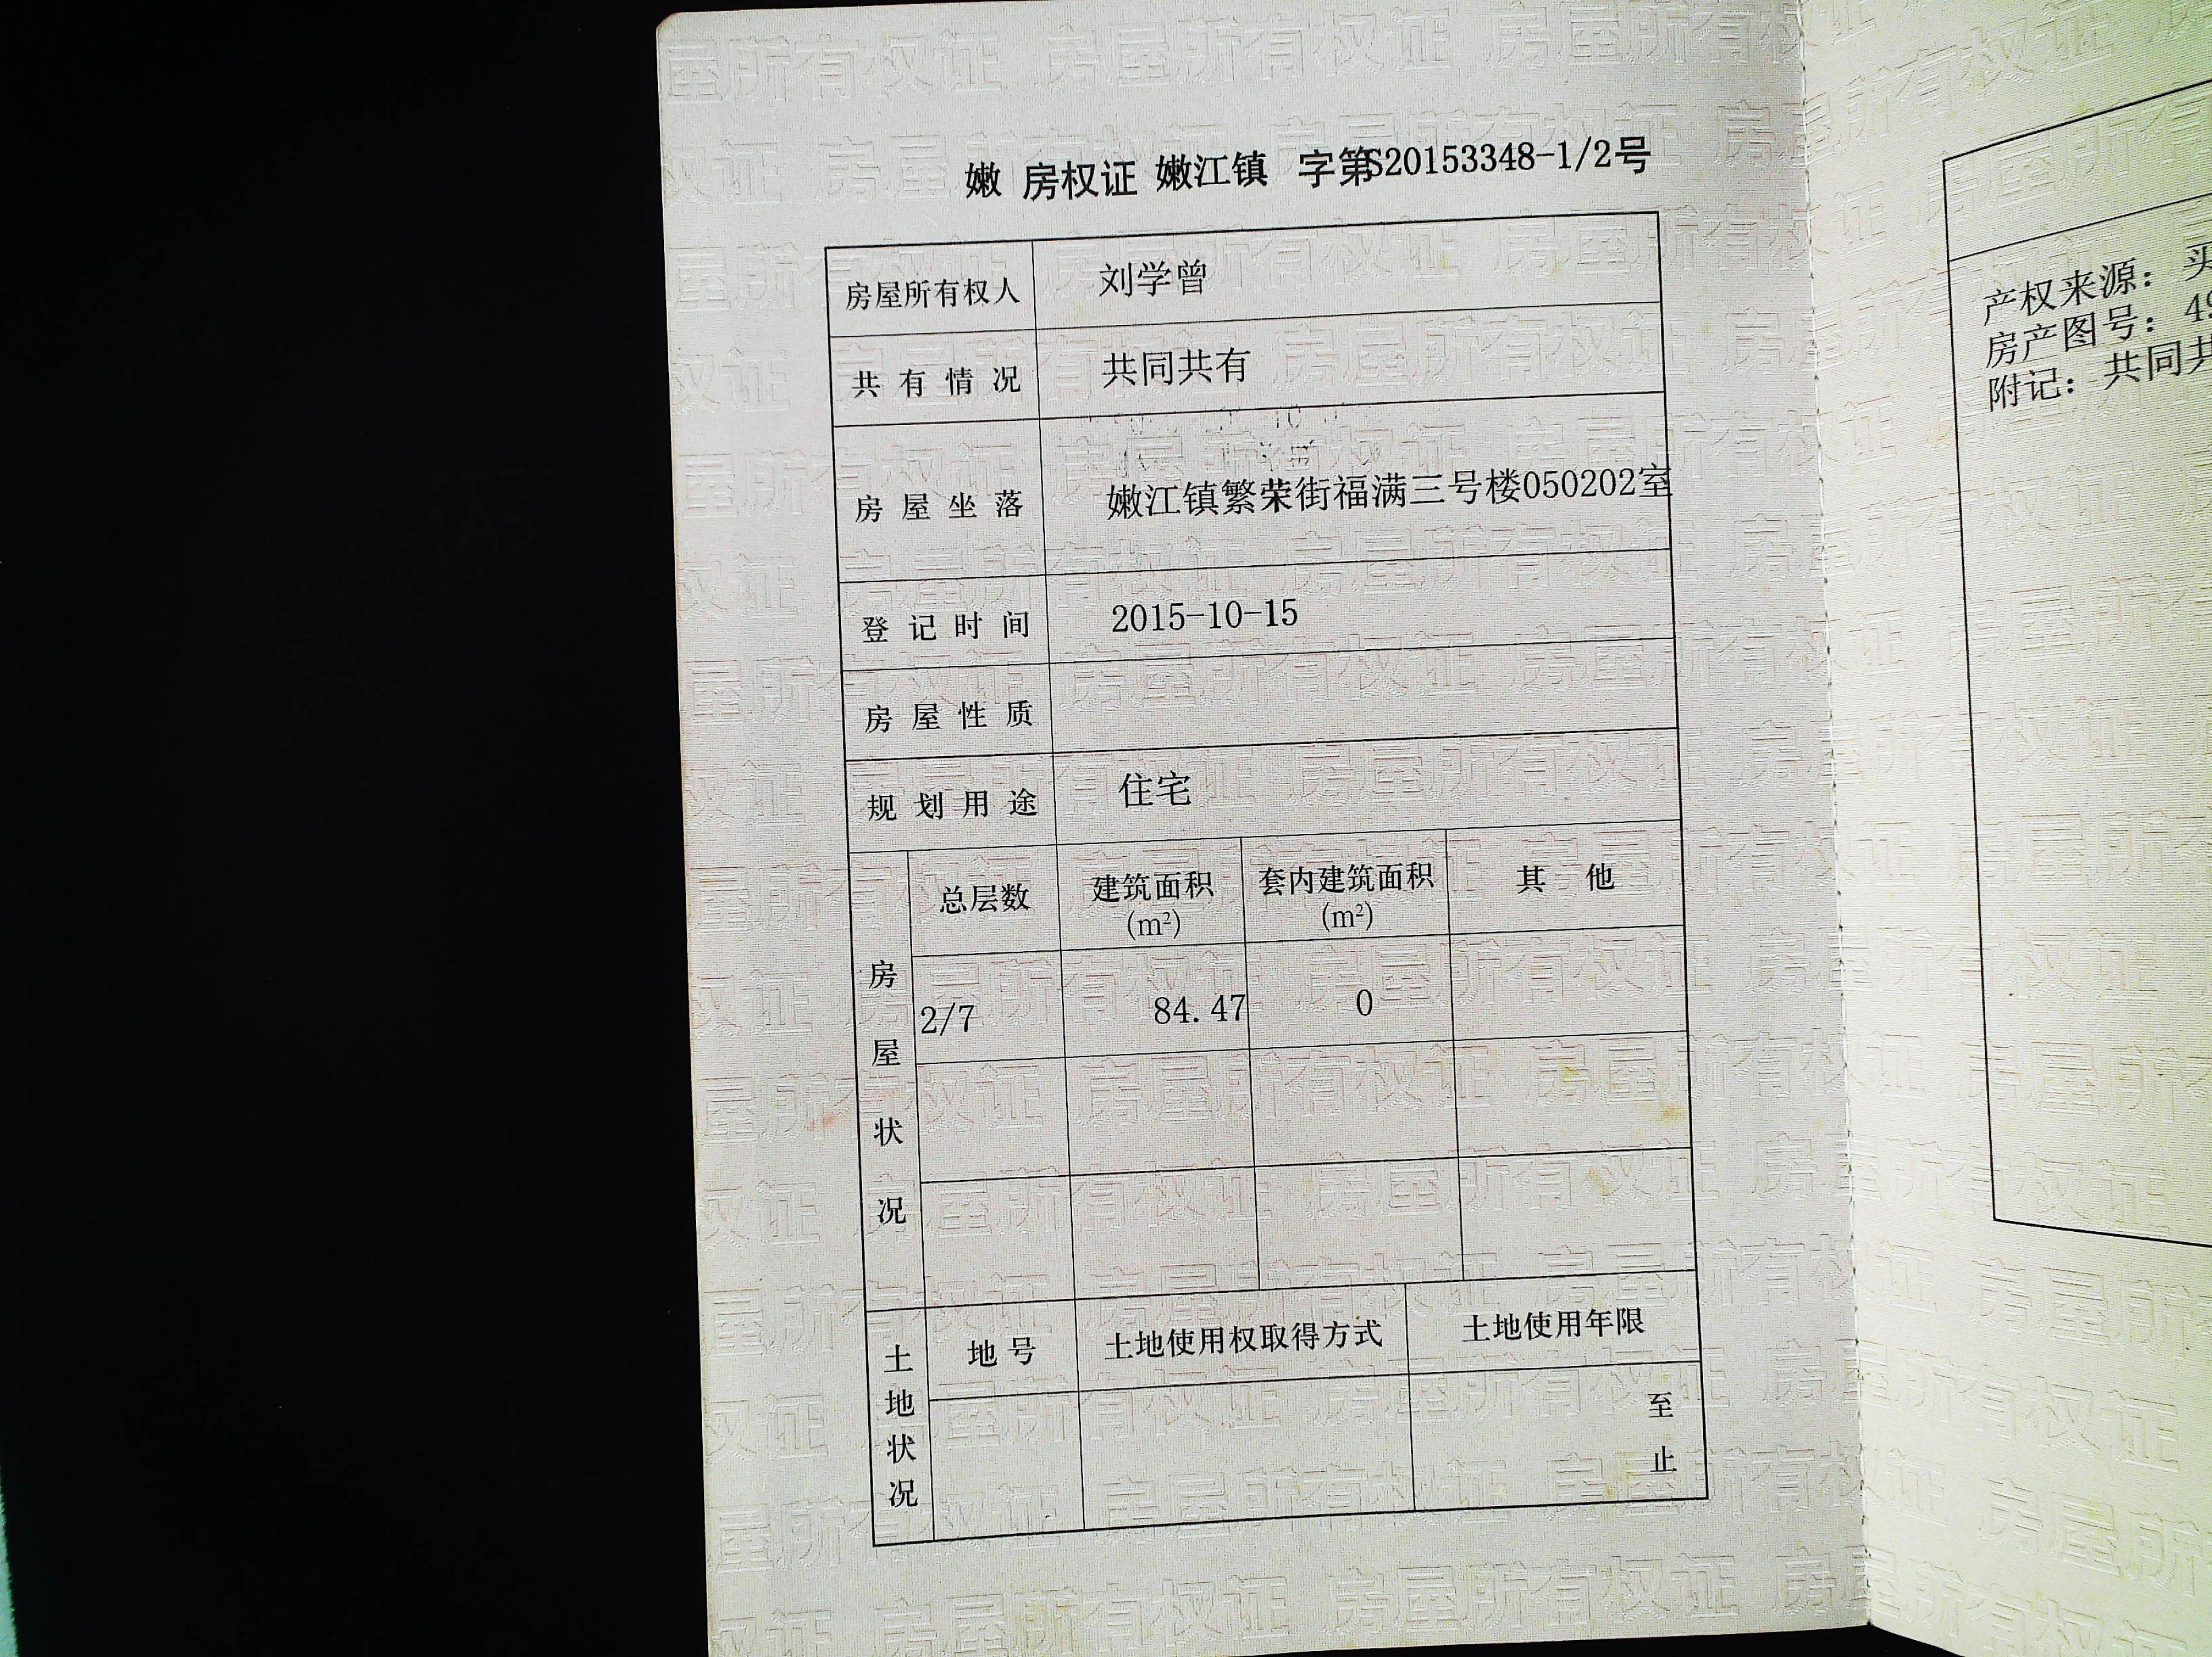 嫩 房权证 嫩江镇 字第S20153348-1/2号
房屋所有权人 刘学曾
共有情况 共同共有
房屋坐落 嫩江镇繁荣街福满三号楼050202室
登记时间 2015-10-15
房屋性质
规划用途 住宅
房屋状况
总层数 建筑面积(m²) 套内建筑面积(m²) 其他
2/7 84.47 0
土地状况
地号 土地使用权取得方式 土地使用年限
至
止
产权来源：买
房产图号：49
附记：共同共
房屋所有权证